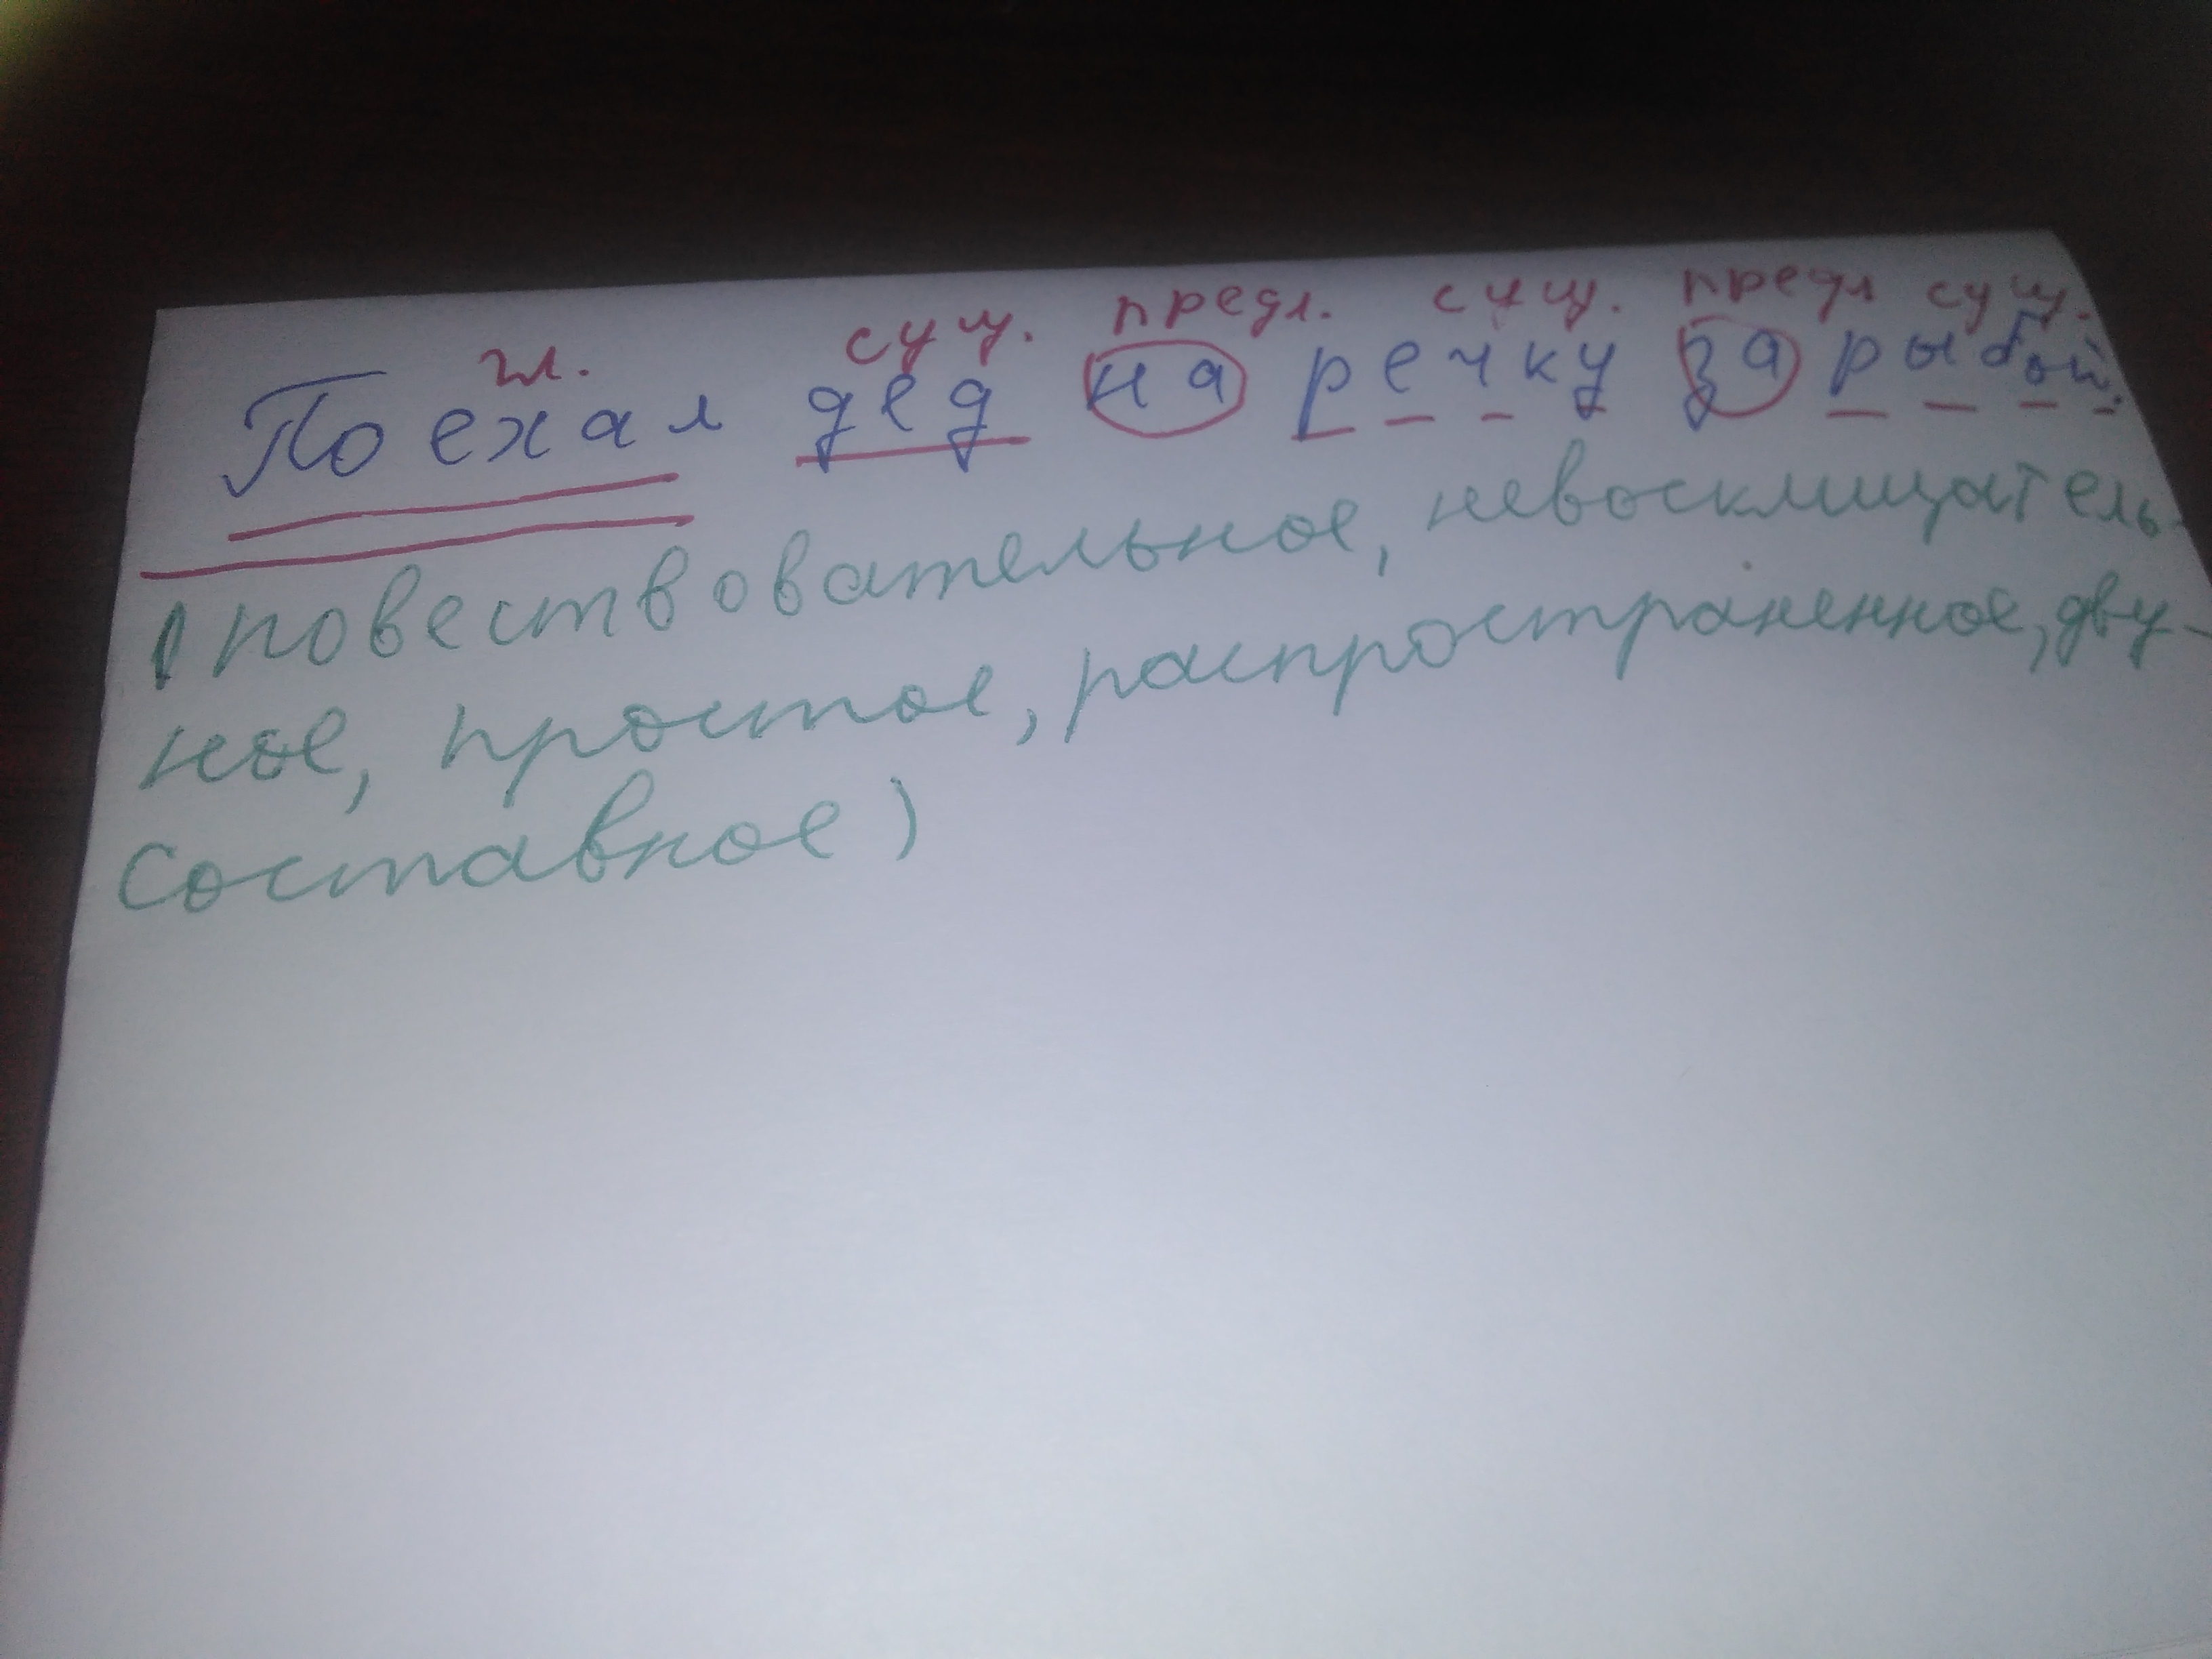 гл. сущ. предл. сущ. предл сущ.
Поехал дед на речку за рыбой.
(повествовательное, невосклицатель-
ное, простое, распространенное, дву-
составное)